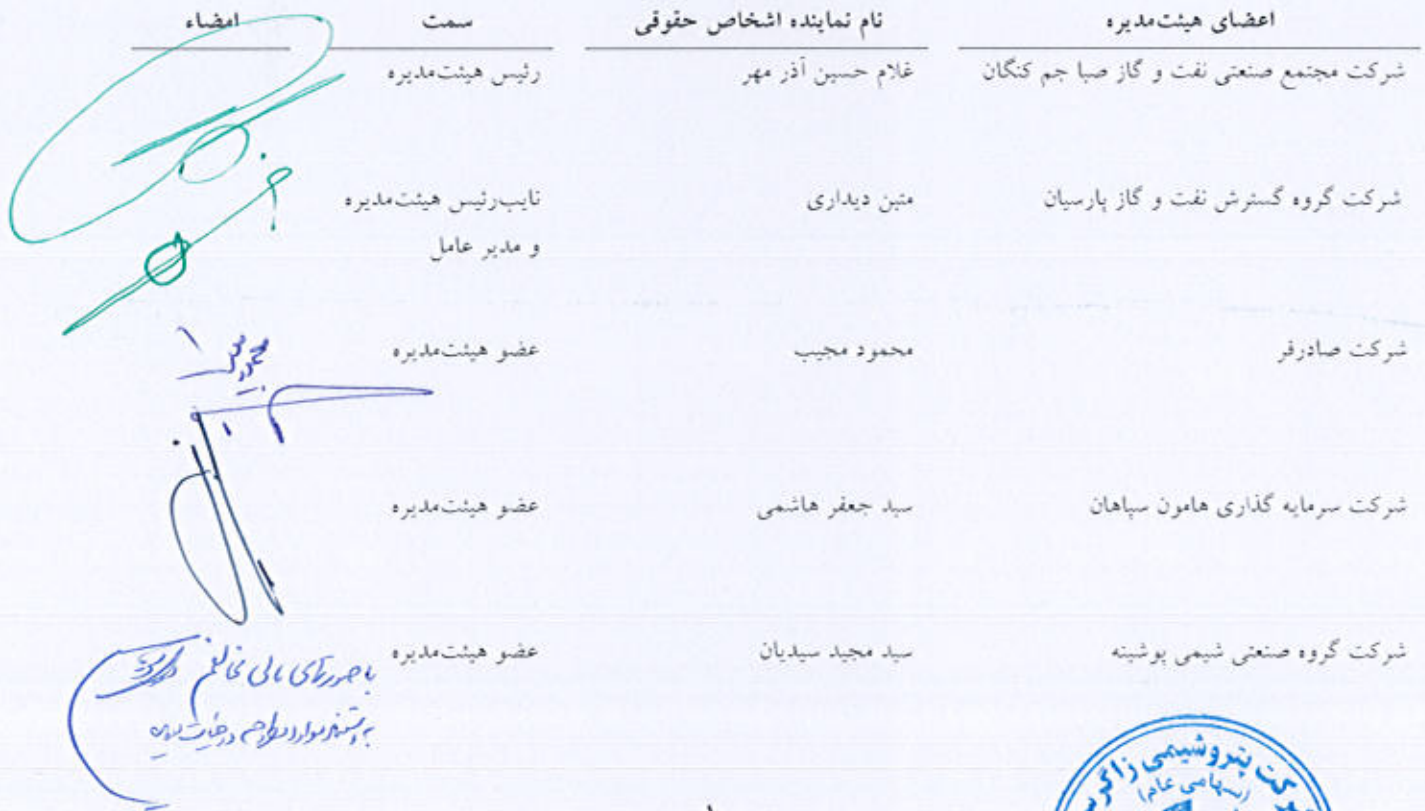 اعضای هیئت‌مدیره نام نماینده اشخاص حقوقی سمت امضاء
شرکت مجتمع صنعتی نفت و گاز صبا جم کنگان غلام حسین آذر مهر رئیس هیئت‌مدیره
شرکت گروه گسترش نفت و گاز پارسیان متین دیداری نایب‌رئیس هیئت‌مدیره
و مدیر عامل
شرکت صادرفر محمود مجیب عضو هیئت‌مدیره
محمود مجیب
شرکت سرمایه گذاری هامون سپاهان سید جعفر هاشمی عضو هیئت‌مدیره
شرکت گروه صنعتی شیمی پوشینه سید مجید سیدیان عضو هیئت‌مدیره
با صورتهای مالی مخالفم
پتروشیمی
(سهامی عام)